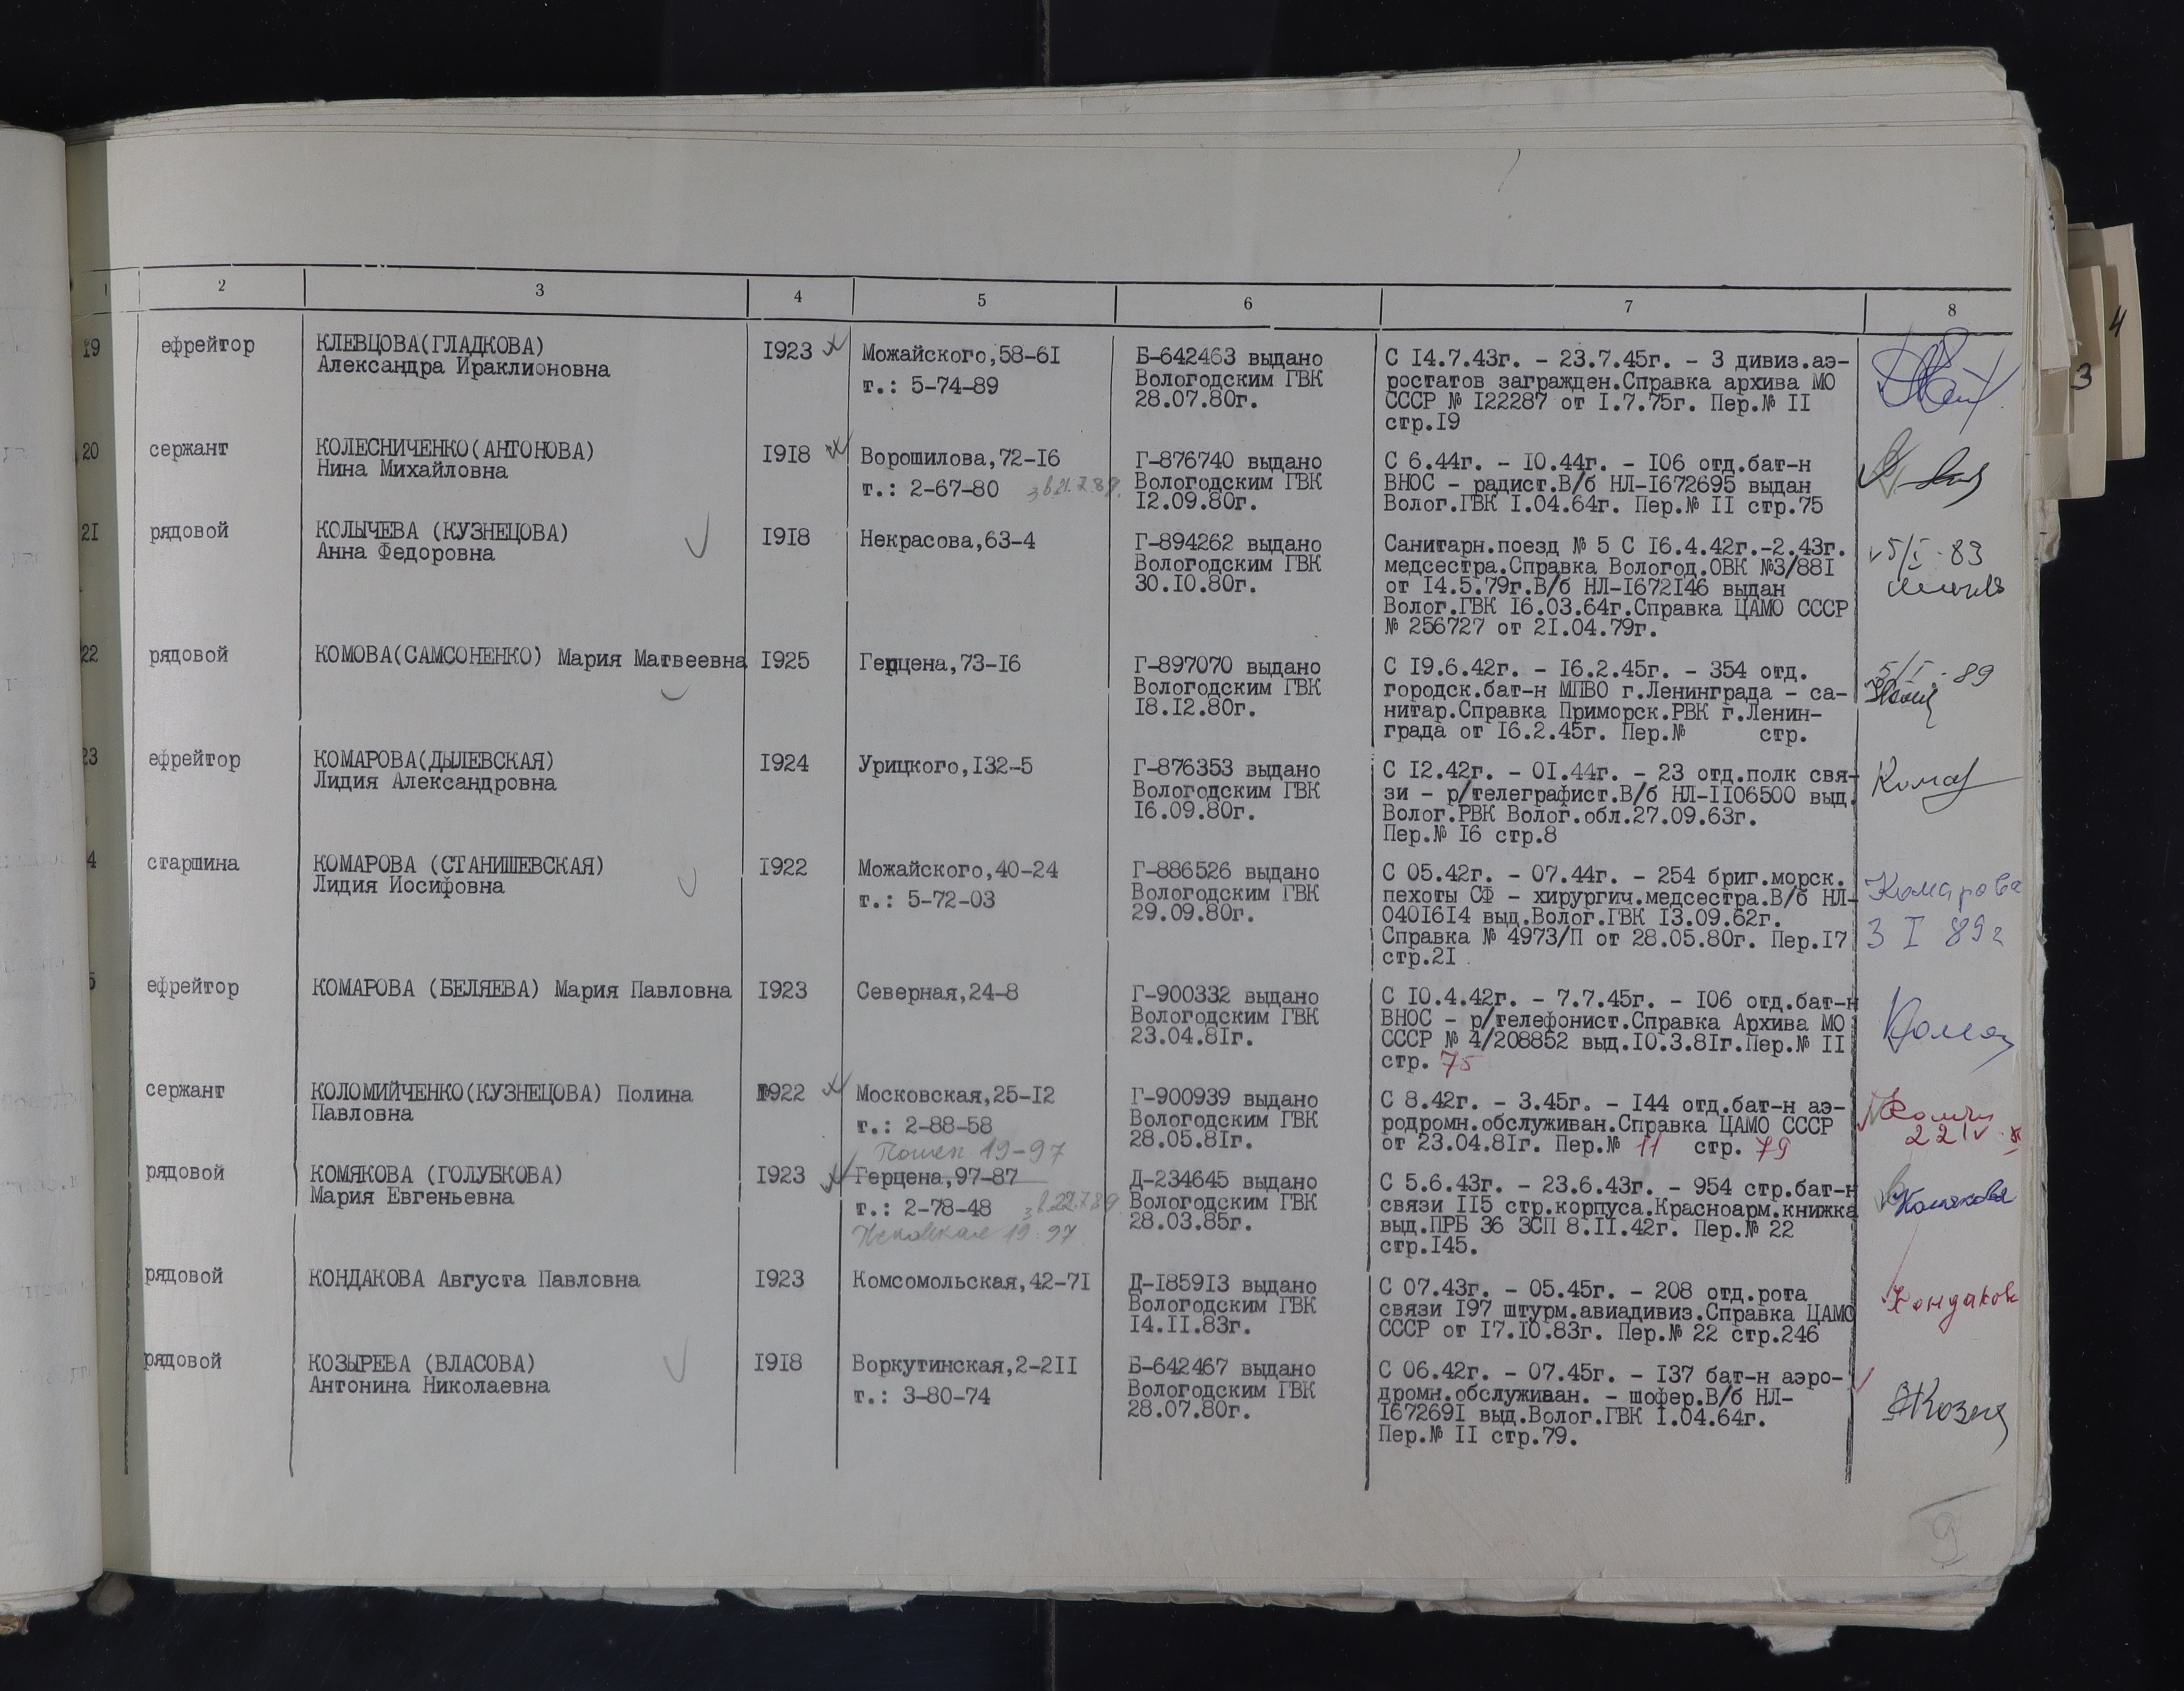 1 2 3 4 5 6 7 8
19 ефрейтор КЛЕВЦОВА(ГЛАДКОВА) I923 Можайского,58-6I Б-642463 выдано С I4.7.43г. - 23.7.45г. - 3 дивиз.аэ-
Александра Ираклионовна т.: 5-74-89 Вологодским ГВК ростатов загражден.Справка архива МО
28.07.80г. СССР № I22287 от I.7.75г. Пер.№ II
стр.I9
20 сержант КОЛЕСНИЧЕНКО(АНТОНОВА) I9I8 Ворошилова,72-I6 Г-876740 выдано С 6.44г. - I0.44г. - I06 отд.бат-н
Нина Михайловна т.: 2-67-80 Вологодским ГВК ВНОС - радист.В/б НЛ-I672695 выдан
I2.09.80г. Волог.ГВК I.04.64г. Пер.№ II стр.75
2I рядовой КОЛЫЧЕВА (КУЗНЕЦОВА) I9I8 Некрасова,63-4 Г-894262 выдано Санитарн.поезд № 5 С I6.4.42г.-2.43г. 5/I-83
Анна Федоровна Вологодским ГВК медсестра.Справка Вологод.ОВК №3/88I
30.I0.80г. от I4.5.79г.В/б НЛ-I672I46 выдан
Волог.ГВК I6.03.64г.Справка ЦАМО СССР
№ 256727 от 2I.04.79г.
22 рядовой КОМОВА(САМСОНЕНКО) Мария Матвеевна I925 Герцена,73-I6 Г-897070 выдано С I9.6.42г. - I6.2.45г. - 354 отд. 5/I-89
Вологодским ГВК городск.бат-н МПВО г.Ленинграда - са-
I8.I2.80г. нитар.Справка Приморск.РВК г.Ленин-
града от I6.2.45г. Пер.№ стр.
23 ефрейтор КОМАРОВА(ДЫЛЕВСКАЯ) I924 Урицкого,I32-5 Г-876353 выдано С I2.42г. - 0I.44г. - 23 отд.полк свя-
Лидия Александровна Вологодским ГВК зи - р/телеграфист.В/б НЛ-II06500 выд.
I6.09.80г. Волог.РВК Волог.обл.27.09.63г.
Пер.№ I6 стр.8
4 старшина КОМАРОВА (СТАНИШЕВСКАЯ) I922 Можайского,40-24 Г-886526 выдано С 05.42г. - 07.44г. - 254 бриг.морск. Комарова
Лидия Иосифовна т.: 5-72-03 Вологодским ГВК пехоты СФ - хирургич.медсестра.В/б НЛ-
29.09.80г. 040I6I4 выд.Волог.ГВК I3.09.62г. 3 I 89г
Справка № 4973/П от 28.05.80г. Пер.I7
стр.2I
5 ефрейтор КОМАРОВА (БЕЛЯЕВА) Мария Павловна I923 Северная,24-8 Г-900332 выдано С I0.4.42г. - 7.7.45г. - I06 отд.бат-н
Вологодским ГВК ВНОС - р/телефонист.Справка Архива МО
23.04.8Iг. СССР № 4/208852 выд.I0.3.8Iг.Пер.№ II
стр. 75
сержант КОЛОМИЙЧЕНКО(КУЗНЕЦОВА) Полина I922 Московская,25-I2 Г-900939 выдано С 8.42г. - 3.45г. - I44 отд.бат-н аэ-
Павловна т.: 2-88-58 Вологодским ГВК родромн.обслуживан.Справка ЦАМО СССР
28.05.8Iг. от 23.04.8Iг. Пер.№ 11 стр. 79
19-97
рядовой КОМЯКОВА (ГОЛУБКОВА) I923 Герцена,97-87 Д-234645 выдано С 5.6.43г. - 23.6.43г. - 954 стр.бат-н
Мария Евгеньевна т.: 2-78-48 Вологодским ГВК связи II5 стр.корпуса.Красноарм.книжка Комякова
28.03.85г. выд.ПРБ 36 ЗСП 8.II.42г. Пер.№ 22
19-97 стр.I45.
рядовой КОНДАКОВА Августа Павловна I923 Комсомольская,42-7I Д-I859I3 выдано С 07.43г. - 05.45г. - 208 отд.рота
Вологодским ГВК связи I97 штурм.авиадивиз.Справка ЦАМО Кондаков
I4.II.83г. СССР от I7.I0.83г. Пер.№ 22 стр.246
рядовой КОЗЫРЕВА (ВЛАСОВА) I9I8 Воркутинская,2-2II Б-642467 выдано С 06.42г. - 07.45г. - I37 бат-н аэро-
Антонина Николаевна т.: 3-80-74 Вологодским ГВК дромн.обслуживан. - шофер.В/б НЛ-
28.07.80г. I67269I выд.Волог.ГВК I.04.64г.
Пер.№ II стр.79.
9
4
3